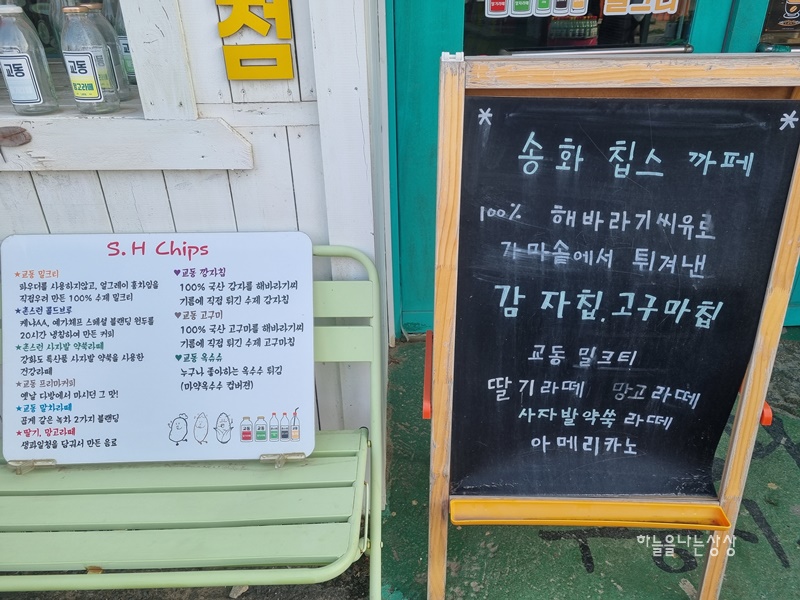 교동
망고라떼
점
S.H Chips
★교동 밀크티
파우더를 사용하지않고, 얼그레이 홍차잎을
직접우려 만든 100% 수제 밀크티
★촌스런 콜드브루
케냐AA, 예가체프 스페셜 블랜딩 원두를
20시간 냉침하여 만든 커피
★촌스런 사자발 약쑥라떼
강화도 특산품 사자발 약쑥을 사용한
건강라떼
★교동 프리마커피
옛날 다방에서 마시던 그 맛!
★교동 말차라떼
곱게 갈은 녹차 2가지 블랜딩
★딸기, 망고라떼
생과일청을 담궈서 만든 음료
♥교동 깡자칩
100% 국산 감자를 해바라기씨
기름에 직접 튀긴 수제 감자칩
♥교동 고구미
100% 국산 고구마를 해바라기씨
기름에 직접 튀긴 수제 고구마칩
♥교동 옥슈슈
누구나 좋아하는 옥수수 튀김
(마약옥수수 컵버젼)
* *
송화 칩스 까페
100% 해바라기씨유로
가마솥에서 튀겨낸
감자칩.고구마칩
교동 밀크티
딸기라떼 망고라떼
사자발약쑥 라떼
아메리카노
하늘을나는상상